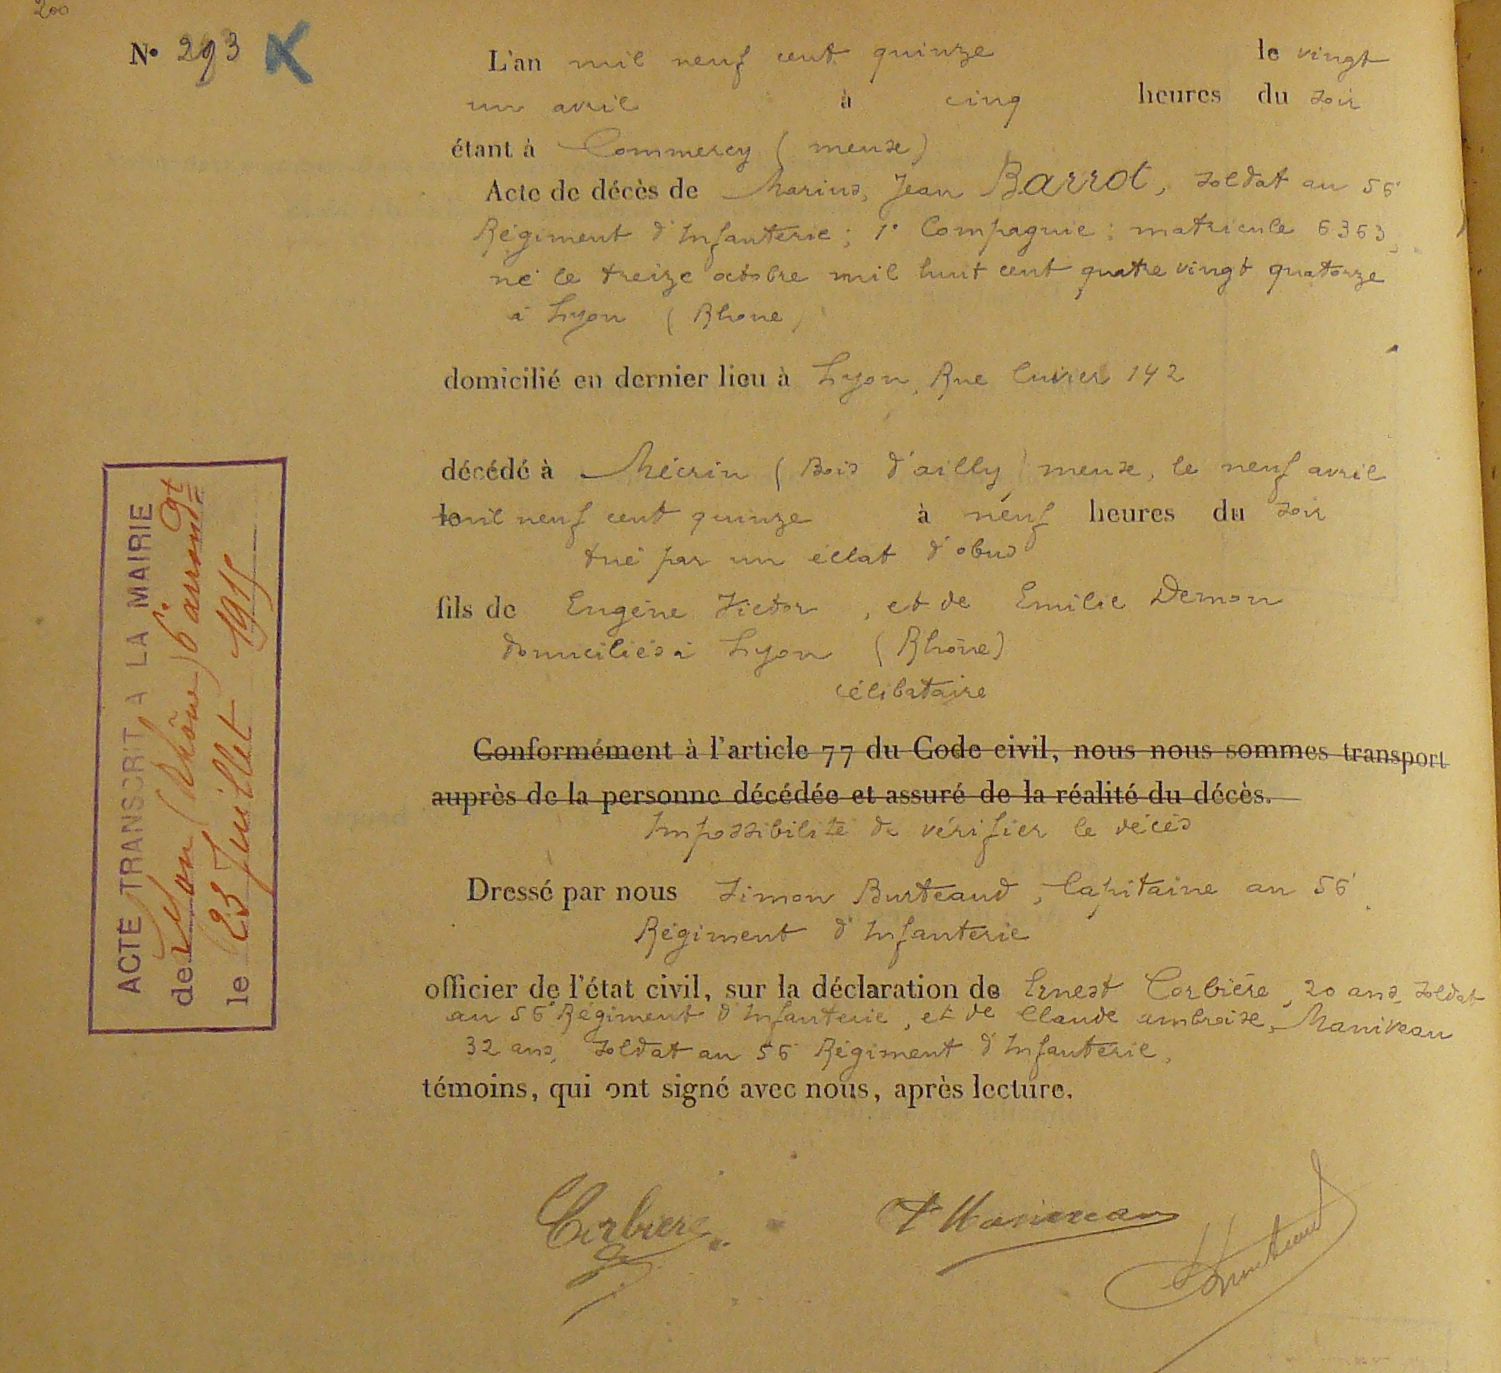 200
N° 293 K
L'an mil neuf cent quinze le vingt
un avril à cinq heures du soir
étant à Commercy (meuse)
Acte de décès de Marius, Jean Barrot, soldat au 56
Régiment d'Infanterie; 1e Compagnie; matricule 6363,
né le treize octobre mil huit cent quatre vingt quatorze
à Lyon (Rhone)
domicilié en dernier lieu à Lyon, Rue Cuvier 142
décédé à Mécrin (Bois d'ailly) meuse, le neuf avril
le mil neuf cent quinze à neuf heures du soir
tué par un éclat d'obus
fils de Eugène Victor, et de Emilie Demon
domiciliés à Lyon (Rhône)
célibataire
Conformément à l'article 77 du Code civil, nous nous sommes transport
auprès de la personne décédée et assuré de la réalité du décès.
Impossibilité de vérifier le décès
Dressé par nous Simon Burteaud, Capitaine au 56
Régiment d'Infanterie
officier de l'état civil, sur la déclaration de Ernest Corbière, 20 ans, soldat
au 56 Régiment d'Infanterie, et de Claude ambroise, Maniveau
32 ans, soldat au 56 Régiment d'Infanterie,
témoins, qui ont signé avec nous, après lecture.
Corbière
Maniveau
Burteaud
ACTE TRANSCRIT A LA MAIRIE
de Lyon (Rhône) 6e arrondt
le 23 Juillet 1915